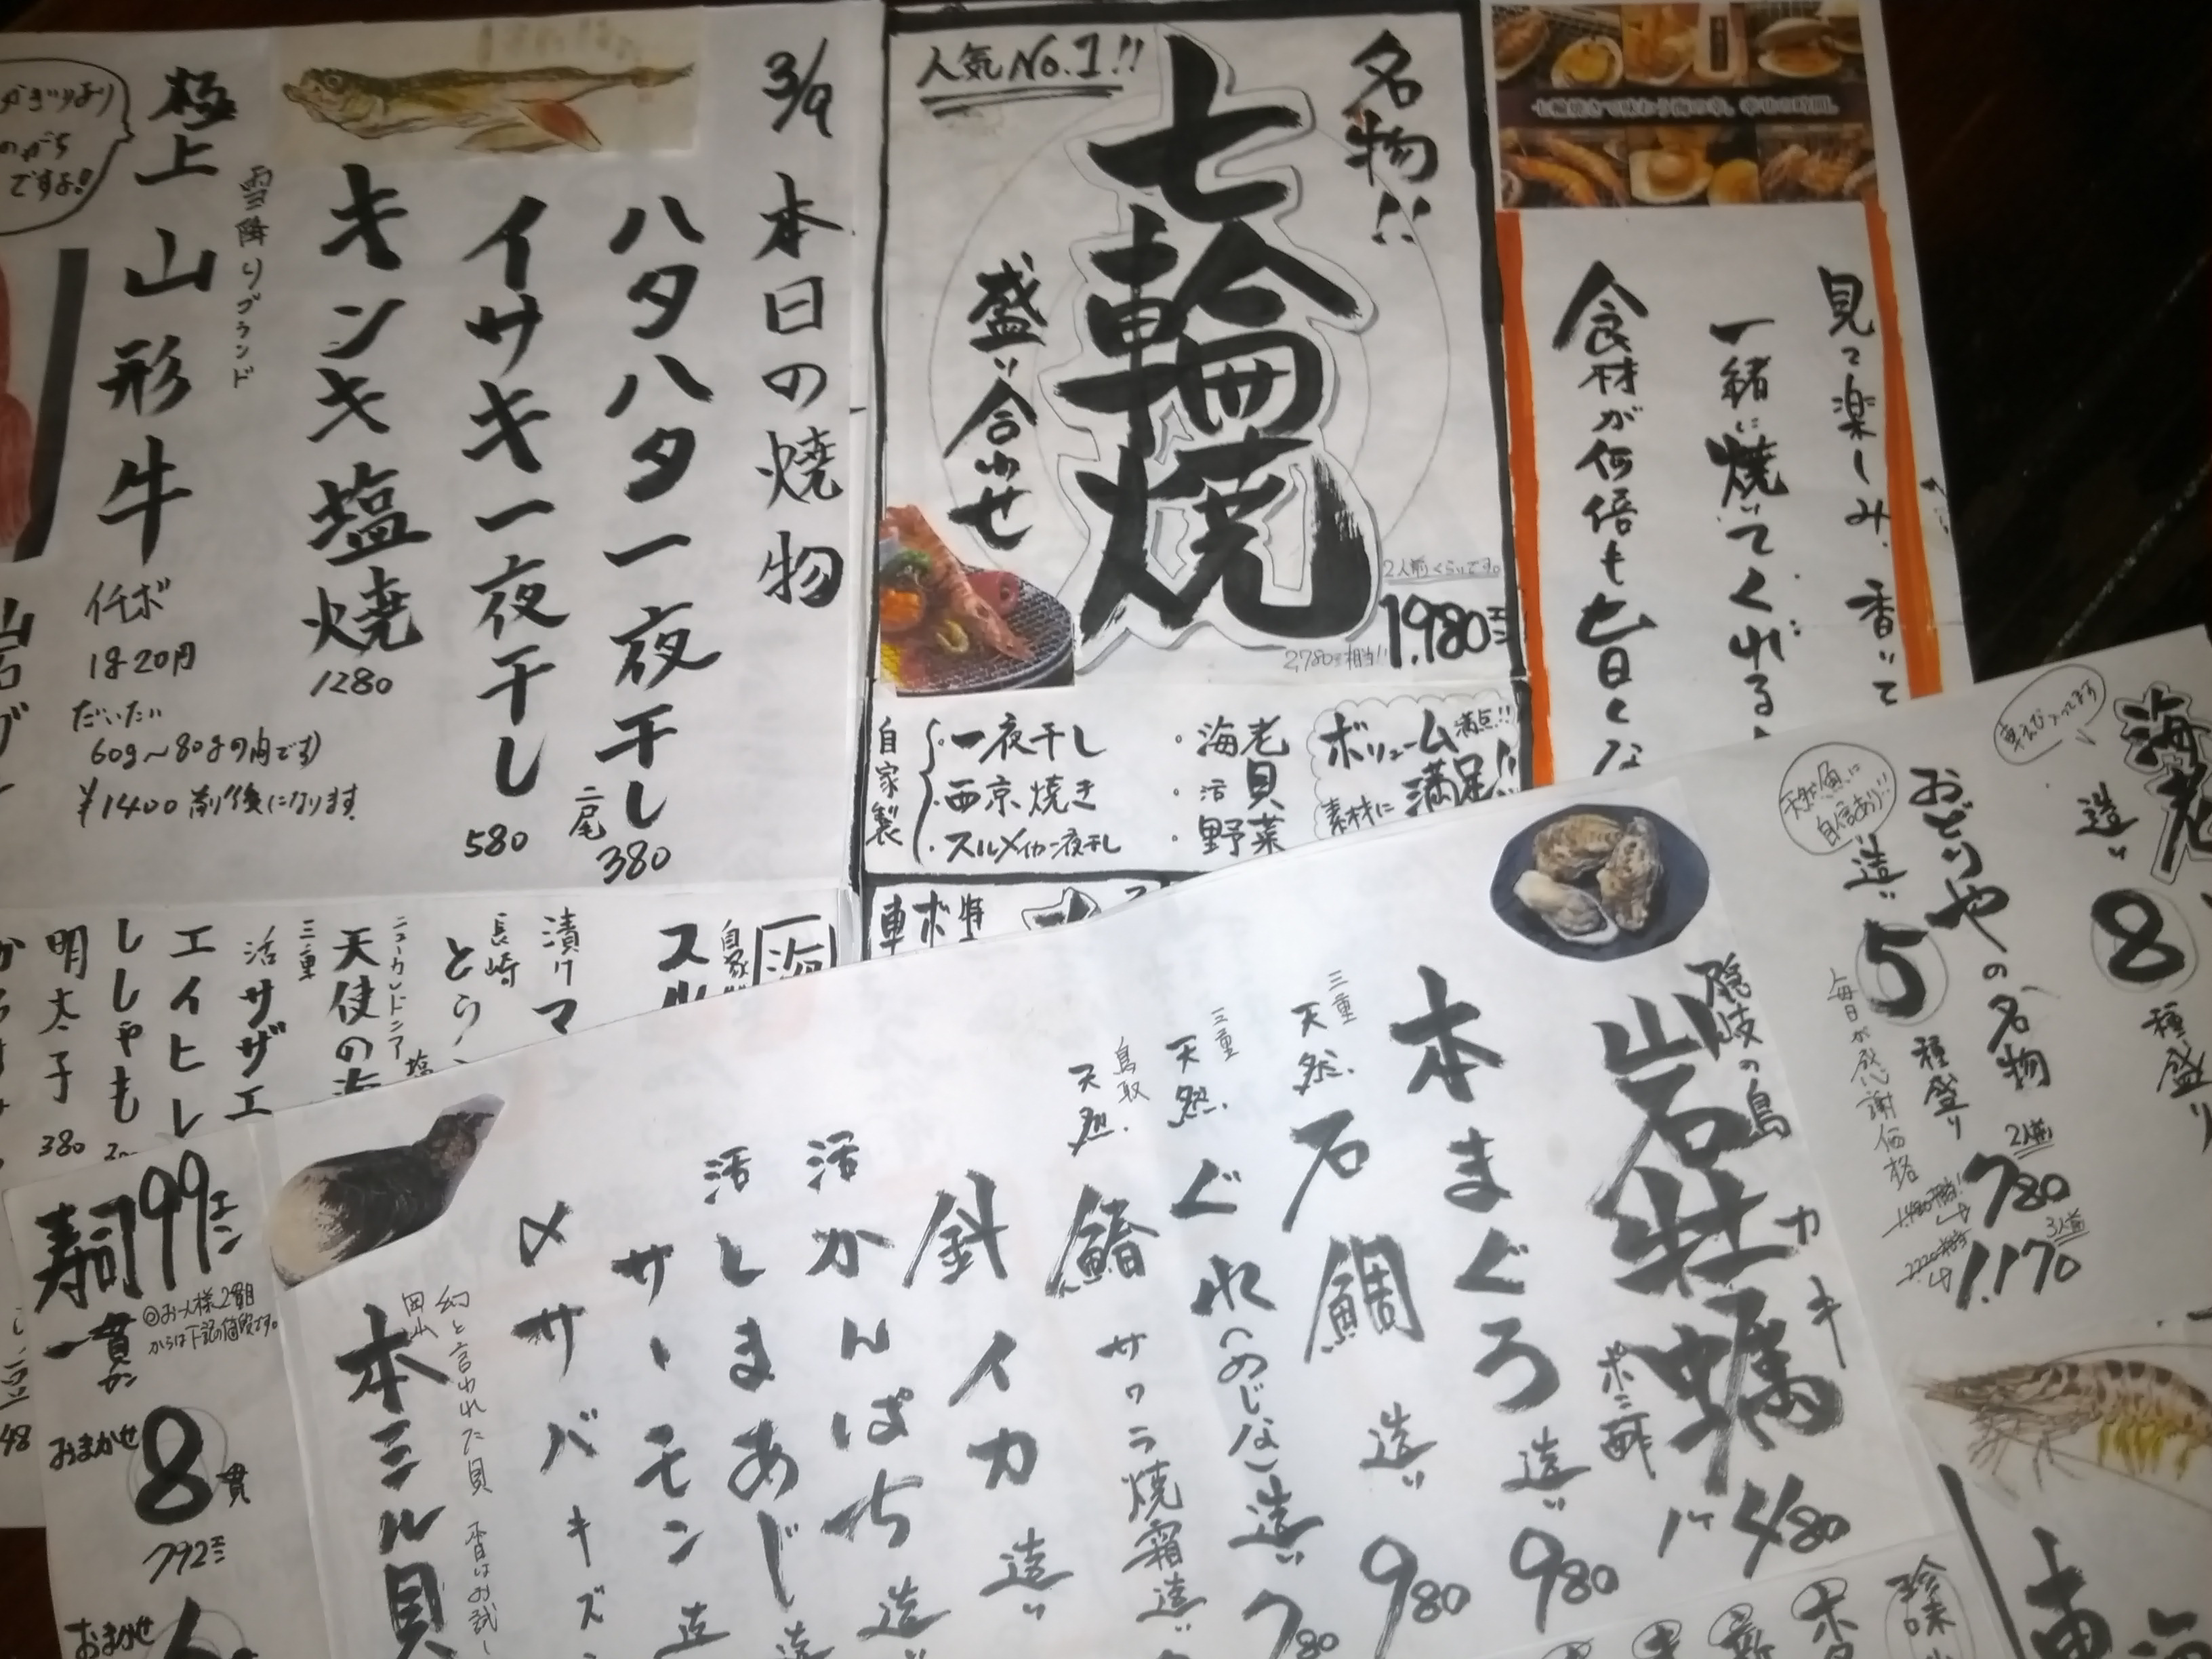 3/9 本日の焼物
ハタハタ一夜干し
二尾 380
イサキ一夜干し
580
キンキ塩焼
1280
雪降りブランド
極上山形牛
イチボ
1g 20円
だいたい
60g〜80gの肉です
¥1400前後になります
ですよ!
名物!!
人気No.1!!
七輪焼
盛り合わせ
2人前くらいです。
1,980エン
2,780エン相当!!
自家製
・一夜干し
・西京焼き
・スルメイカ一夜干し
・海老
・活貝
・野菜
ボリューム満点!!
素材に満足!!
七輪焼きで味わう海の幸。幸せの時間。
見て楽しみ、香って
一緒に焼いてくれる
食材が何倍も
車
自家
漬けマ
長崎
とら
ニューカレドニア
天使の海
三重
活サザエ
エイヒレ
ししゃも
明太子
380
海老
造り
8種盛り
おどりやの名物
天然魚に自信あり!!
造り
5種盛り
毎日が感謝価格
2人前
780
1,480相当!!
3人前
1,170
2,220相当
隠岐の島
岩牡蠣
カキ
ポン酢
1ケ 480
本まぐろ造り
980
三重
天然石鯛造り
980
三重
天然ぐれ(めじな)造り
780
鳥取
天然鰆
サワラ焼霜造り
針イカ造り
活かんぱち造り
活しまあじ造
サーモン造
〆サバキズシ
幻と言われた貝
岡山
本ミル貝
寿司
99エン
一貫カン
◎お一人様2貫目
からは下記の値段です。
おまかせ
8貫
792エン
おまかせ
珍味